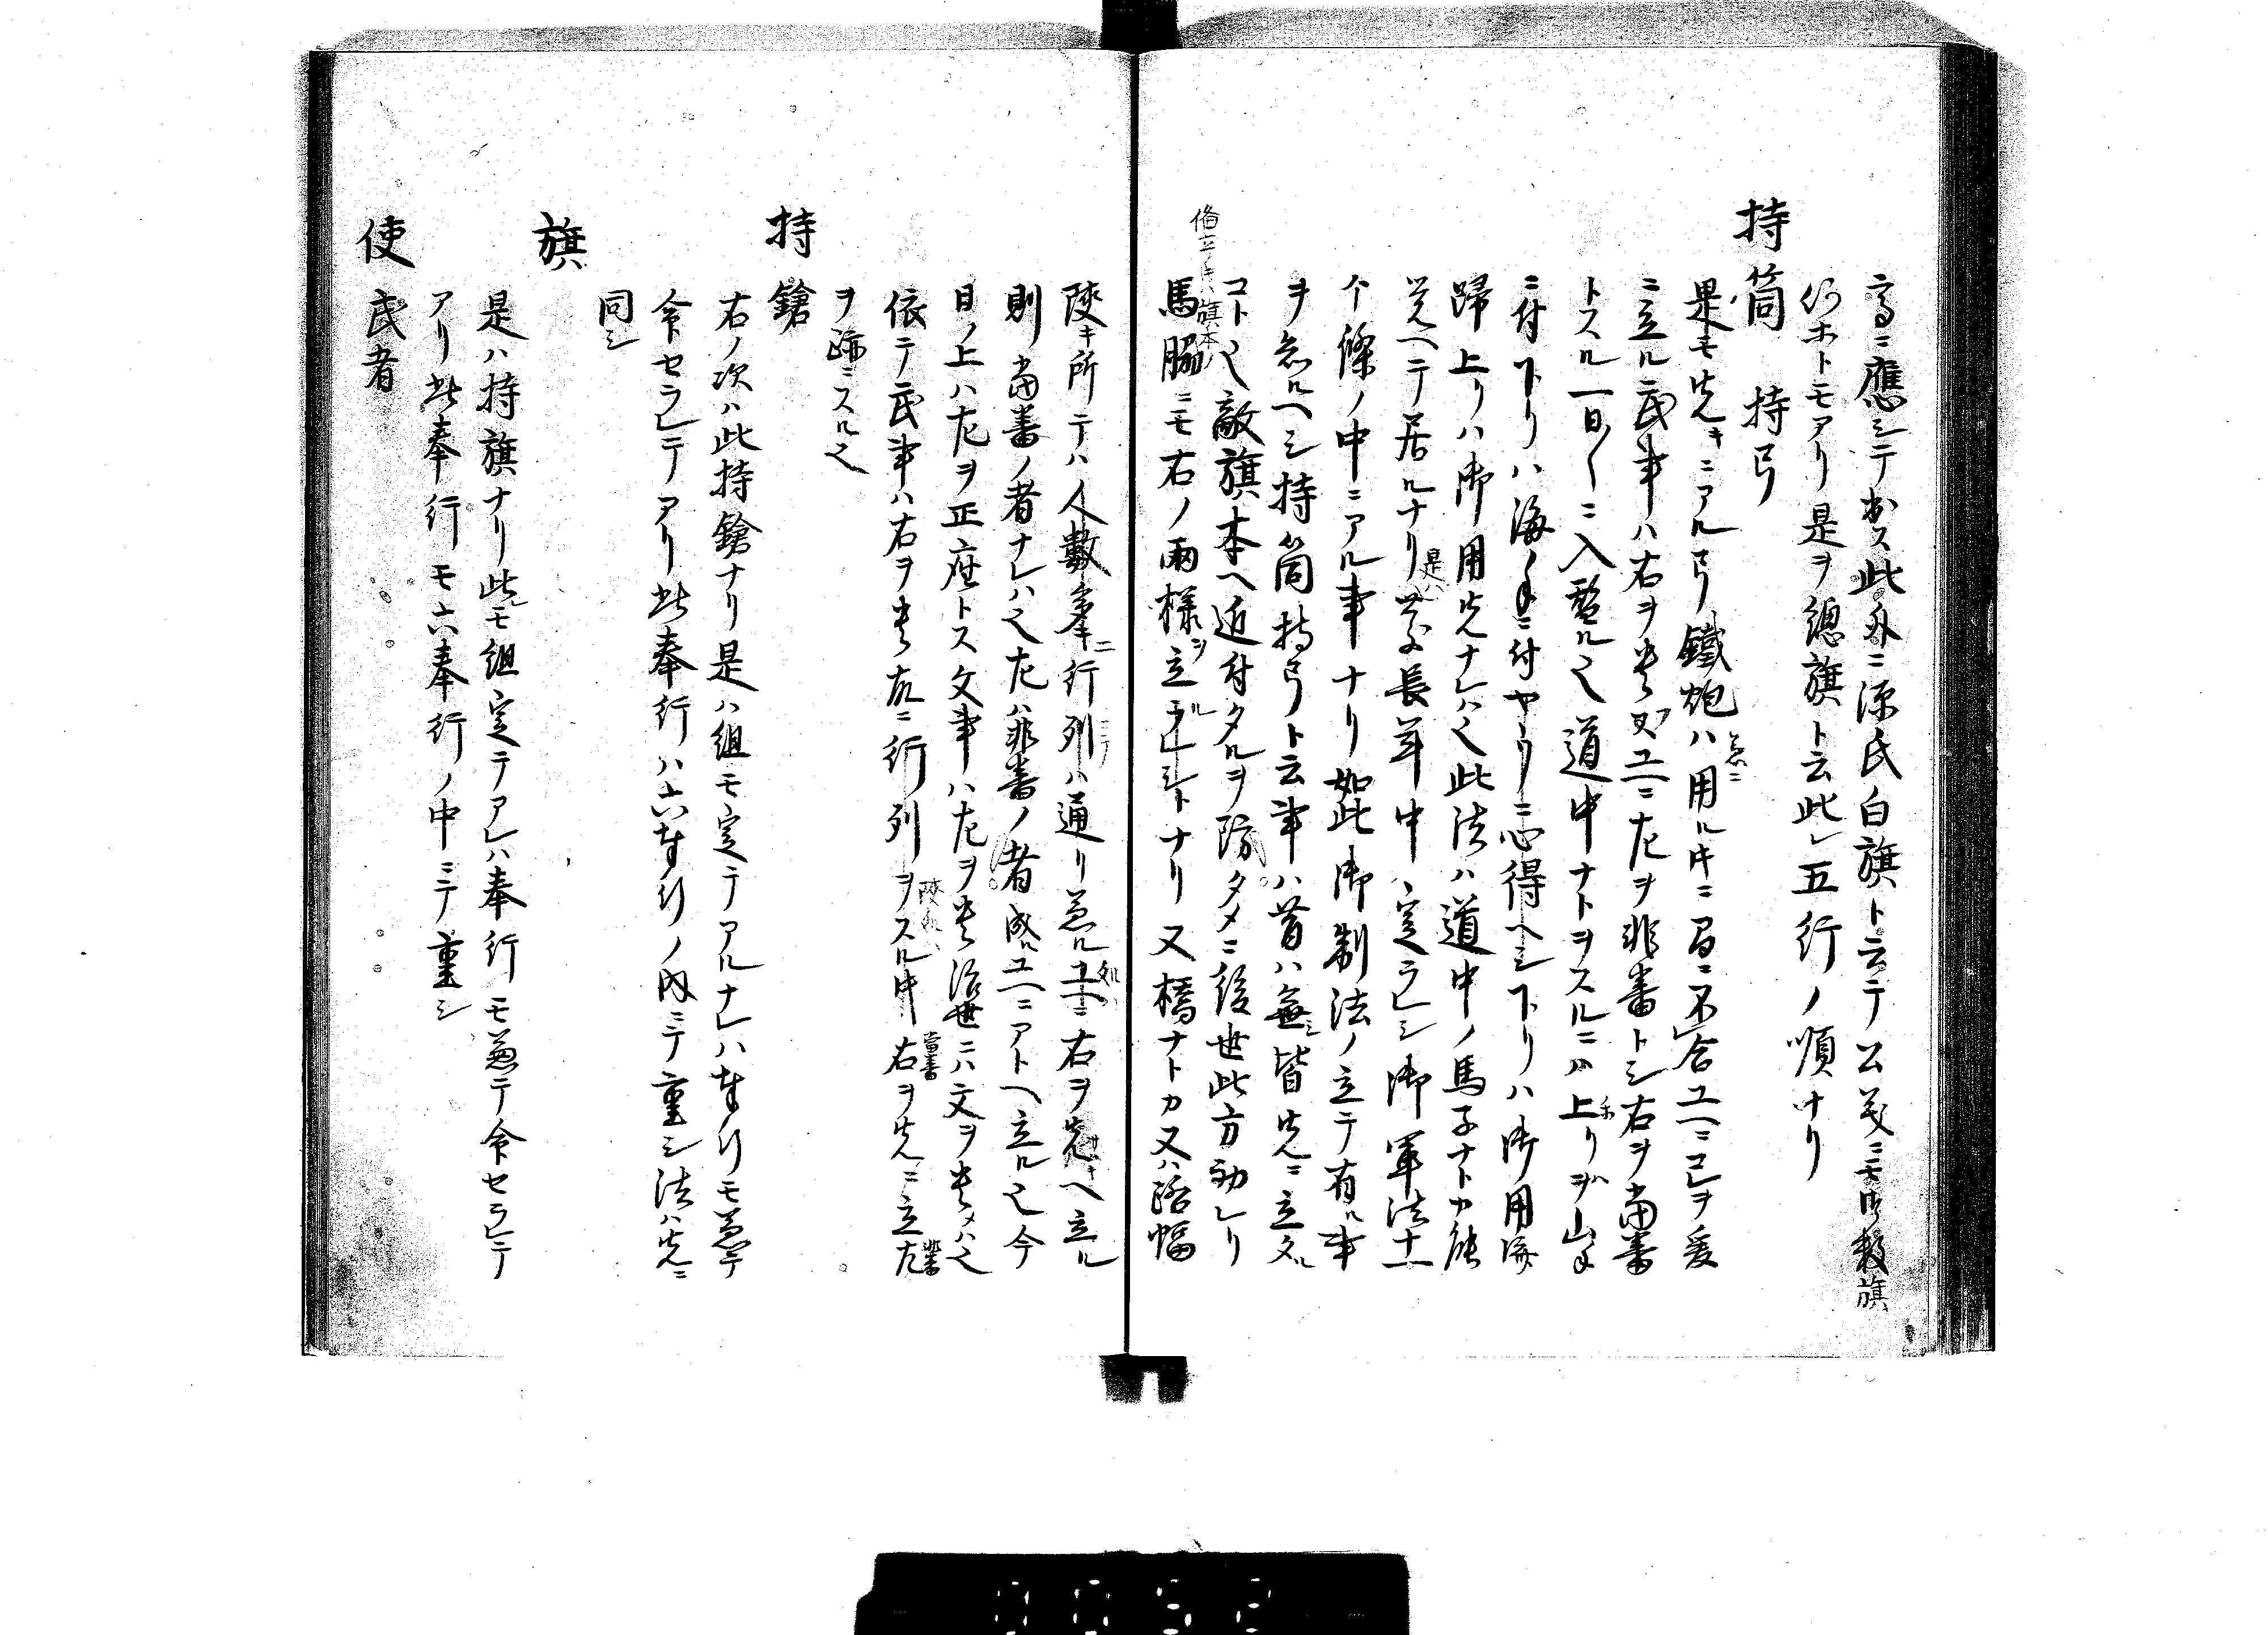 高ニ應シテ出ス此外ニ源氏白旗ト云テ公義ニモ御數旗
何ホトモアリ是ヲ總旗ト云此レ五行ノ順ナリ
持筒 持弓
是モ先キニアル弓鐵炮ハ用ル時ニ間ニ不合ユヘニコレヲ爰
ニ立ル武事ハ右ヲ貴フユヘニ左ヲ非番トシ右ヲ當番
トスル一日〱ニ入替ル也道中ナトヲスルニハ上リハ山ノ手
ニ付下リハ海ノ手ニ付ヤウニ心得ヘシ下リハ御用済
歸上リハ御用先ナレハ也此法ハ道中ノ馬子ナトカ能
覚ヘテ居ルナリ是ハ慶長年中ニ定ラレシ御軍法十一
个條ノ中ニアル事ナリ如此御制法ノ立テ有ル事
ヲ忘ルヘシ持筒持弓ト云事ハ昔ハ無シ皆先ニ立タル
コト也敵旗本ヘ近付タルヲ防タメニ後世此方動レリ
備立ノ時ハ旗本
馬脇ニモ右ノ兩様ヲ立ルラレシトナリ又橋ナトカ又ハ路幅
陜キ所テハ人數多キニ行列ニテハ通リ兼ルユヘニ右ヲ先ヘ立ル
則當番ノ者ナレハ也左ハ非番ノ者成ルユヘニアトヘ立ル也今
日ノ上ハ左ヲ正座トス文事ハ左ヲ貴治世ニハ文ヲ貴メハ也
依テ武事ハ右ヲ貴故ニ行列ヲスル時當番右ヲ先ニ立非番左
ヲ跡ニスル也
持鎗
右ノ次ハ此持鎗ナリ是ハ組モ定テアルナレハ奉行モ兼テ
命セラレテアリ此奉行ハ六奉行ノ内ニテ重シ法ハ先ニ
同シ
旗
是ハ持旗ナリ此モ組定テアレハ奉行モ兼テ命セラレテ
アリ此奉行モ六奉行ノ中ニテ重シ
使武者